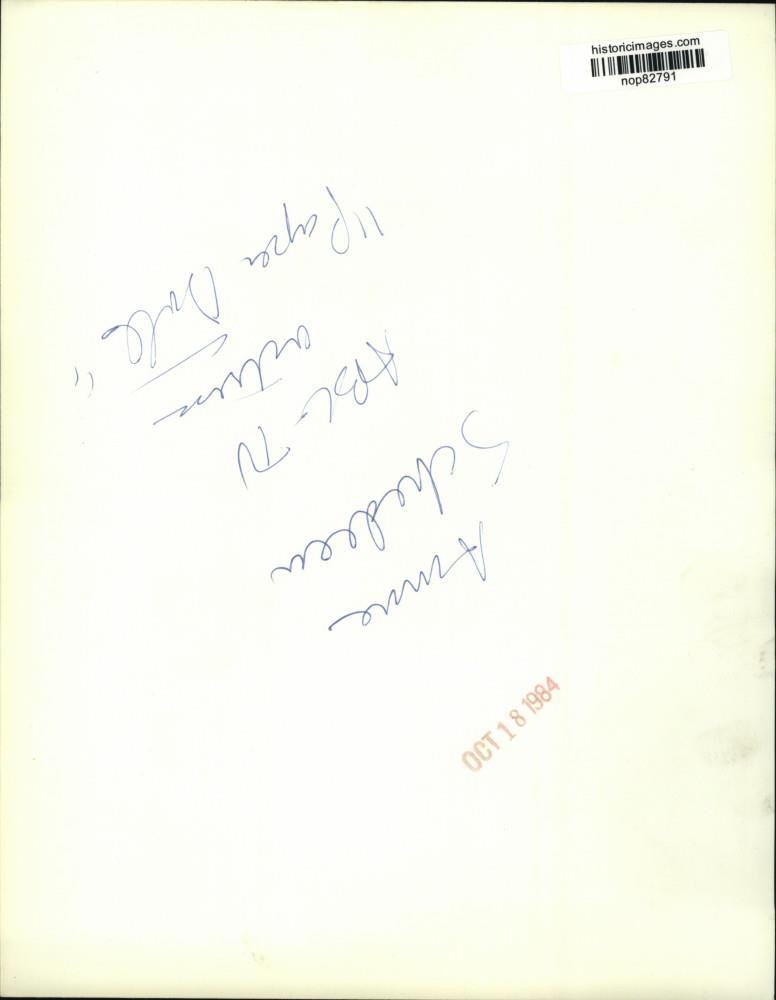 historicimages.com
nop82791
Anne
Schedeen
ABC-TV
actress
"Paper Dolls"
OCT 18 1984